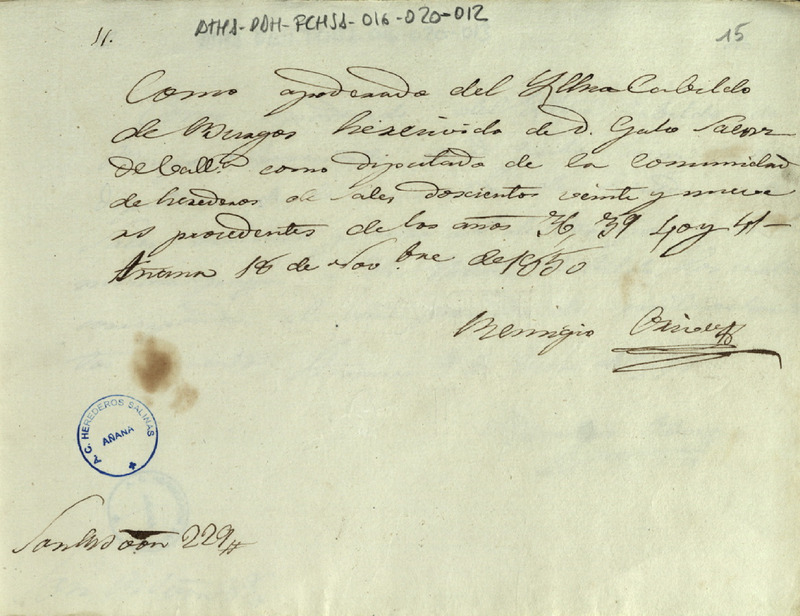 ATHA-DAH-FCHSA-016-020-012
11.
15
Como apoderado del Yllmo Cabildo
de Burgos he recivido de D. Galo
de como diputado de la comunidad
de herederos de sales doscientos veinte y nueve
rs procedentes de los años 36, 39 40 y 41-
Añana 18 de Novbre de 1850
Remigio
A.C. HEREDEROS SALINAS
AÑANA
Son 229